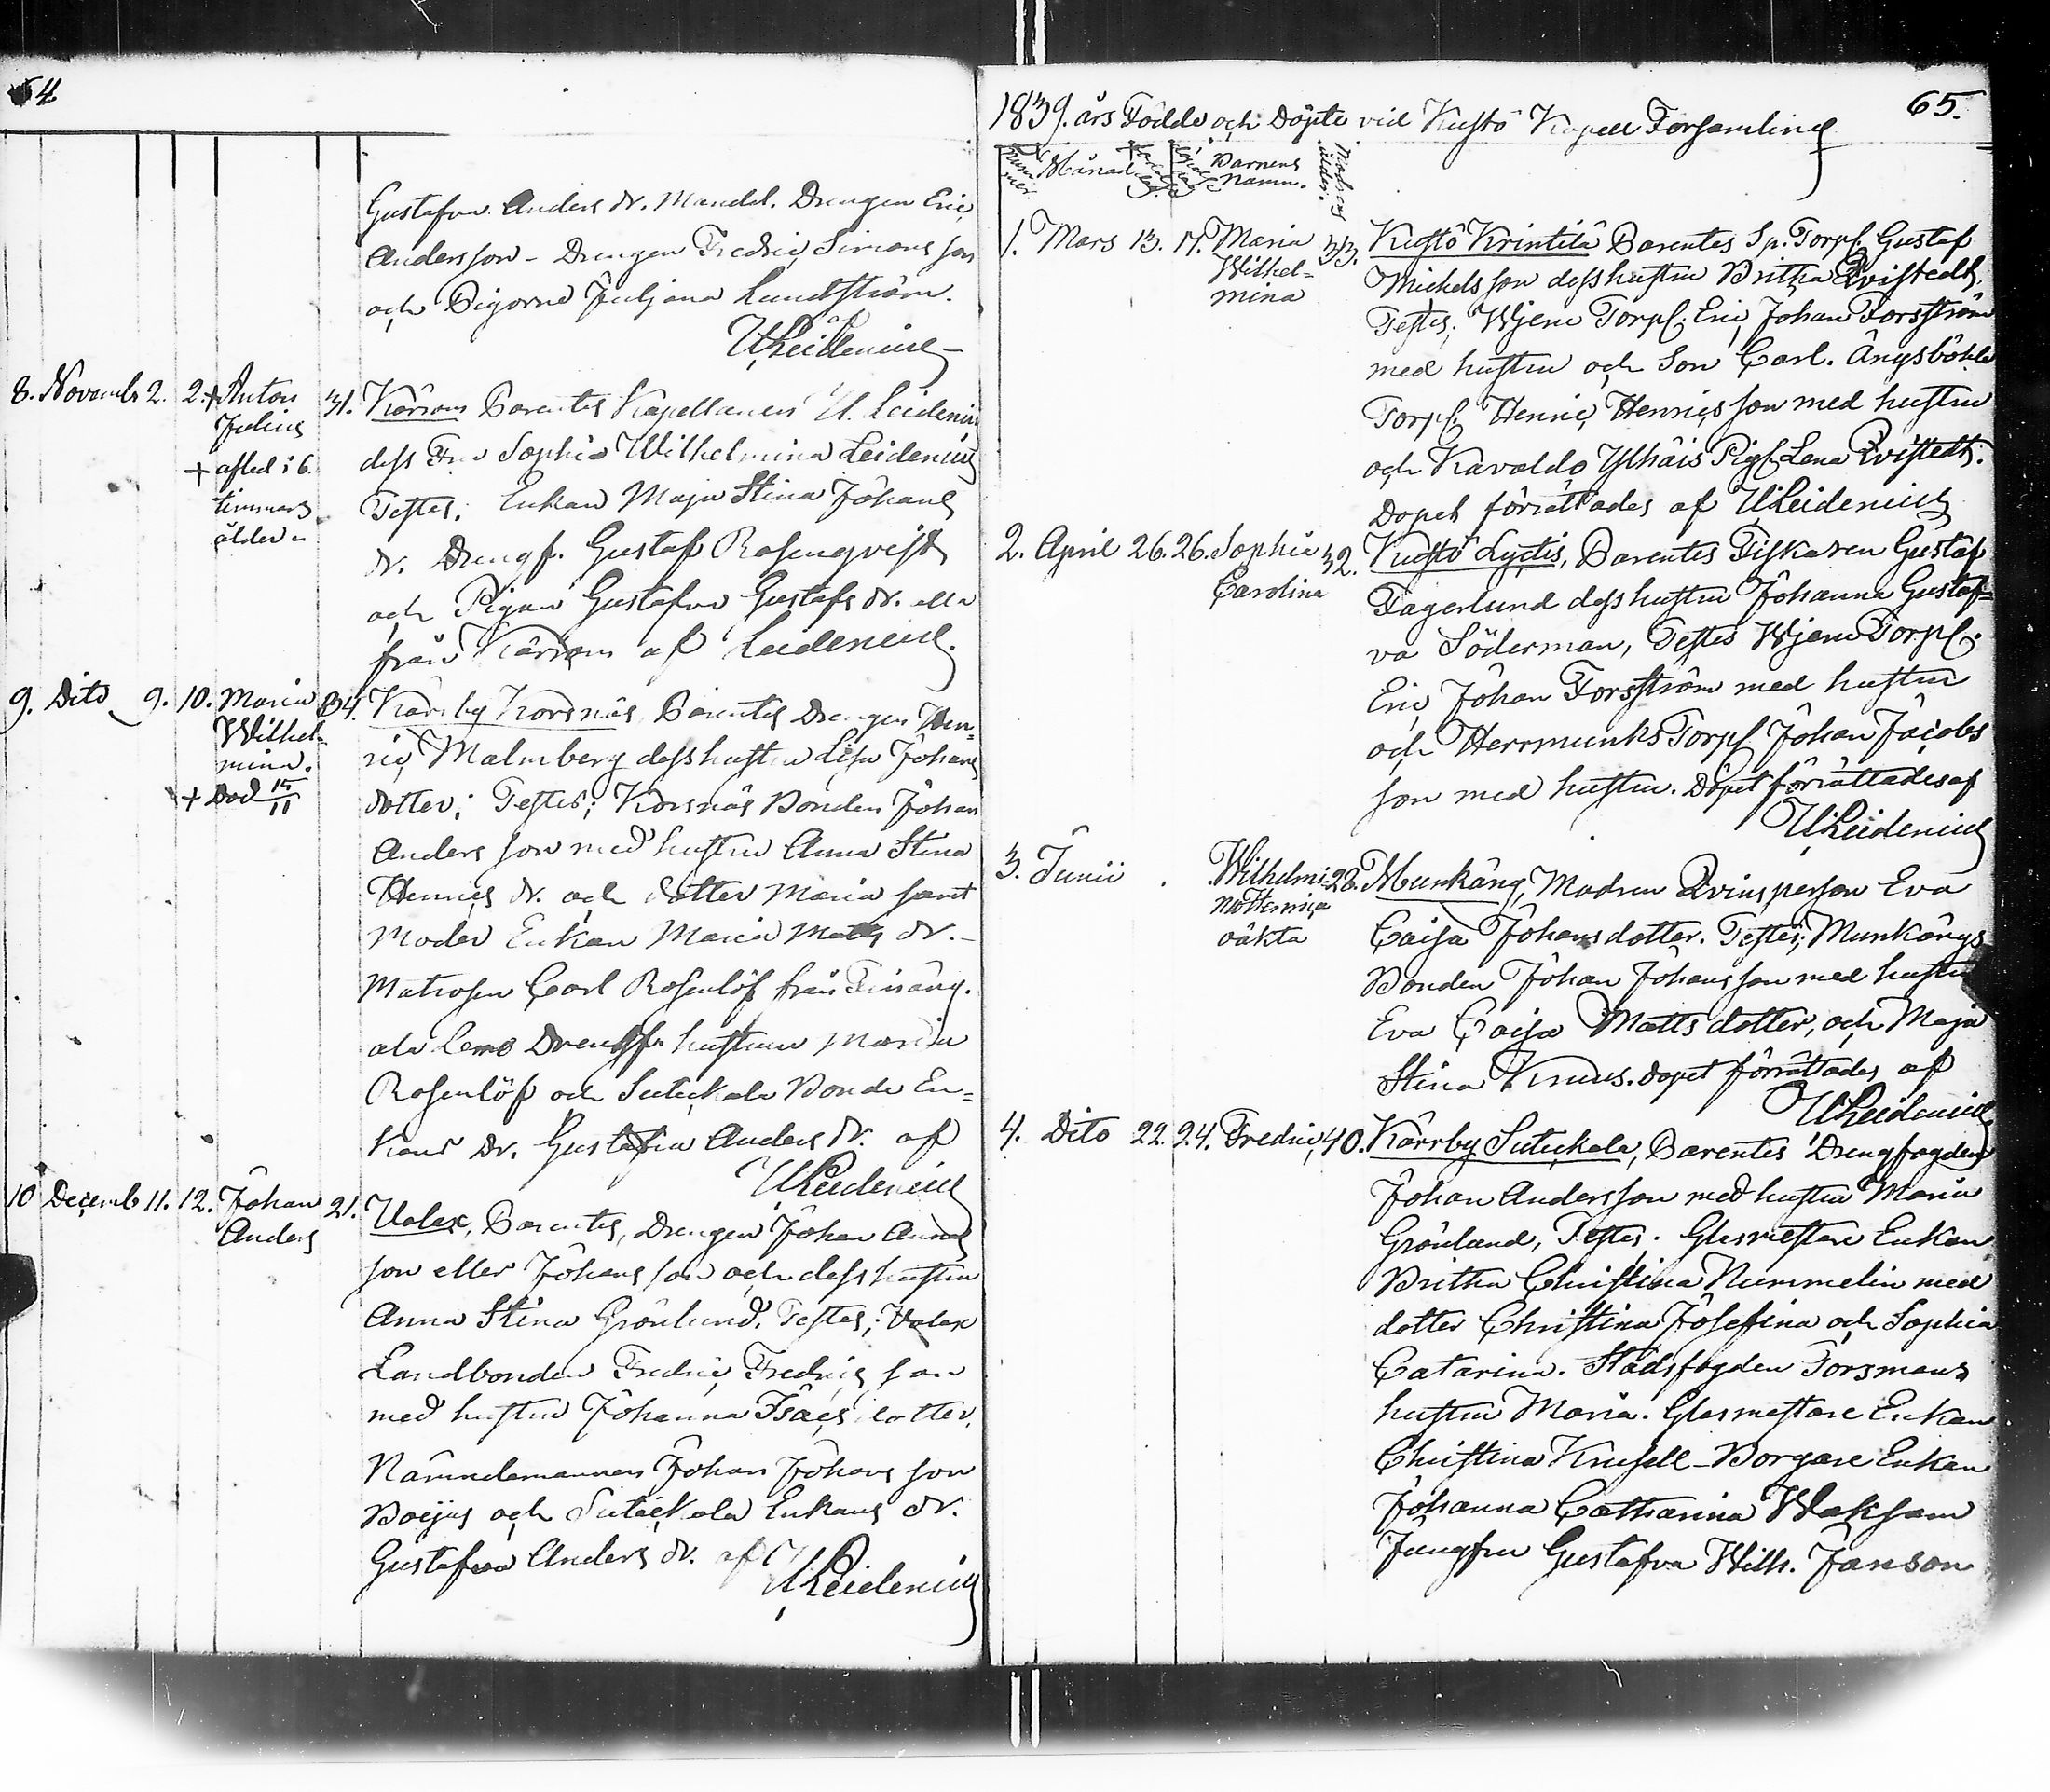 64
Gustafva Anders dr. Mandel. Drengen Eric
Andersson - Drengen Fredric Simons son
och Pigorne Juljana Lundström.
af
U Leidenius
8. Novembr 2. 2. + Anton 31. Kärsam Parentes Kapellanen U. Leidenius
Julius
dess Fru Sophia Wilhelmina Leidenius
+ afled i 6
Testes; Enkan Maja Stina Johans
timmars
ålder
dr. Drengf. Gustaf Rosenqvist
och Pigan Gustafva Gustafs dr. alla
från Kärsam af Leidenius.
9. Dito 9. 10. Maria 34. Kärrby Korsnäs, Parentes Drengen Hen=
Wilhel=
ric Malmberg dess hustru Lisa Johans
mina.
+ Död 15/11
dotter; Testes; Korsnäs Bonden Johan
Anders son med hustru Anna Stina
Henrics dr. och dotter Maria samt
Moder Enkan Maria Matts dr. -
Matrosen Carl Rosenlöf från
ala Lemo Drengf. hustrun Maria
Rosenlöf och Suteckala Bonde En=
kans Dr. Gustafva Anders dr. af
U Leidenius
10 Decemb 11. 12. Johan 21. Valax, Parentes, Drengen Johan Anders
Anders
son eller Johans son och dess hustru
Anna Stina Grönlund. Testes; Valax
Landbonden Fredric Fredrics son
med hustru Johanna Isacs dotter,
Nämndemannen Johan Johans son
Boijus och Suteckala Enkans dr.
Gustafva Anders dr. af
U Leidenius
1839. års Födde och Döpte vid Kustö Kapell Församling
65.
Num mer. Månad Barnens Namn. Modrens ålder.
1. Mars 13. 17. Maria 33. Kustö Krintilä Parentes Sp. Torp. Gustaf
Wilhel=
Michels son dess hustru Britha Qvistedt.
mina
Testes; Wjeno Torp. Eric Johan Forsström
med hustru och Son Carl. Ängsböhle
Torp. Henric Henrics son med hustru
och Kavaldo Pig. Lena Qvistedt.
Dopet förrättades af U Leidenius
2. April 26. 26. Sophia 32. Kustö Lyctis, Parentes Fiskaren Gustaf
Carolina
Fagerlund dess hustru Johanna Gustaf=
va Söderman, Testes Wjeno Torp.
Eric Johan Forsström med hustru
och Herrmunks Torp. Johan Jacobs
son med hustru. Dopet förrättades af
U Leidenius
3. Junii . Wilhelmi= 28. Munkäng, Modren Qvinsperson Eva
na
oäkta
Caisa Johans dotter. Testes; Munkängs
Bonden Johan Johans son med hustru
Eva Caisa Matts dotter, och Maja
Stina Knuus. Dopet förrättades af
U Leidenius
4. Dito 22. 24. Fredric 40. Kärrby Suteckala, Parentes Drengfogden
Johan Andersson med hustru Maria
Grönlund, Testes; Glasmästare Enkan
Britha Christina Nummelin med
dotter Christina Josefina och Sophia
Catarina. Stadsfogden Forsmans
hustru Maria. Glasmästare Enkan
Christina Krusell - Borgare Enkan
Johanna Catharina Waksam
Jungfru Gustafva Wilh. Janson